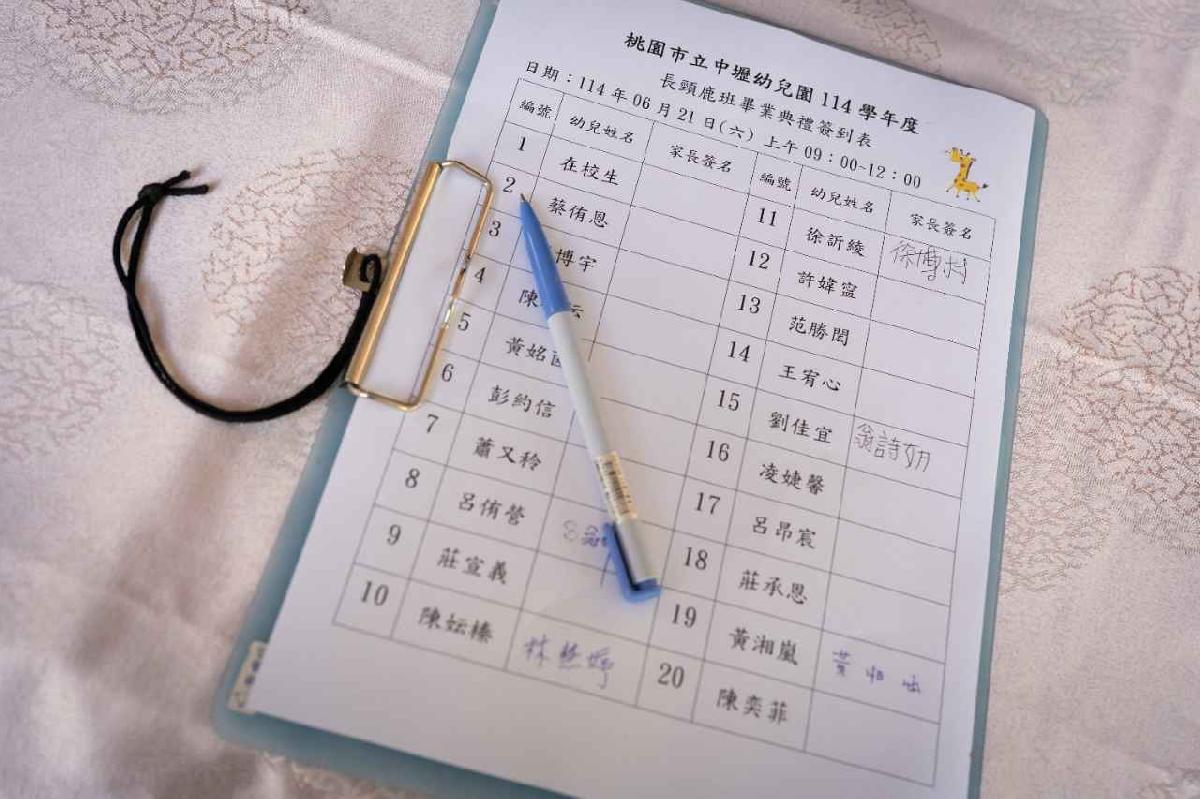 桃園市立中壢幼兒園 114 學年度
長頸鹿班畢業典禮簽到表
日期：114 年 06 月 21 日(六) 上午 09：00~12：00
編號 幼兒姓名 家長簽名 編號 幼兒姓名 家長簽名
1 在校生 11 徐訢綾
2 蔡侑恩 12 許媁寍
3 博宇 13 范勝閎
4 陳 云 14 王宥心
5 黃姳 15 劉佳宜
6 彭約信 16 凌婕馨
7 蕭又秢 17 呂昂宸
8 呂侑營 18 莊承恩
9 莊宣義 19 黃湘嵐
10 陳妘榛 20 陳奕菲